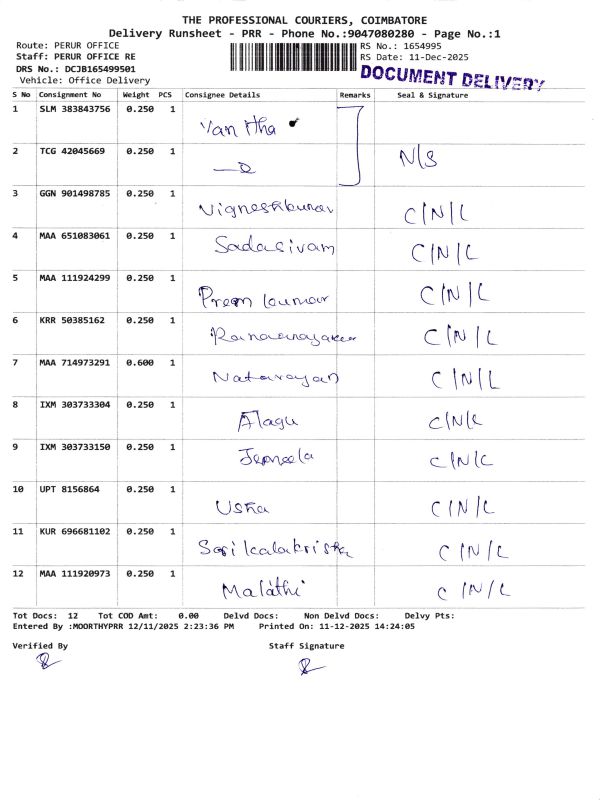 THE PROFESSIONAL COURIERS, COIMBATORE
Delivery Runsheet - PRR - Phone No.:9047080280 - Page No.:1
Route: PERUR OFFICE RS No.: 1654995
Staff: PERUR OFFICE RE RS Date: 11-Dec-2025
DRS No.: DCJB165499501
Vehicle: Office Delivery
DOCUMENT DELIVERY
S No Consignment No Weight PCS Consignee Details Remarks Seal & Signature
1 SLM 383843756 0.250 1 Van tha
2 TCG 42045669 0.250 1 N/S
3 GGN 901498785 0.250 1 Vigneshkumar C/N/L
4 MAA 651083061 0.250 1 Sadasivam C/N/L
5 MAA 111924299 0.250 1 Prem kumar C/N/L
6 KRR 50385162 0.250 1 C/N/L
7 MAA 714973291 0.600 1 Natarayan C/N/L
8 IXM 303733304 0.250 1 Alagu C/N/L
9 IXM 303733150 0.250 1 C/N/L
10 UPT 8156864 0.250 1 Usha C/N/L
11 KUR 696681102 0.250 1 C/N/L
12 MAA 111920973 0.250 1 Malathi C/N/L
Tot Docs: 12 Tot COD Amt: 0.00 Delvd Docs: Non Delvd Docs: Delvy Pts:
Entered By :MOORTHYPRR 12/11/2025 2:23:36 PM Printed On: 11-12-2025 14:24:05
Verified By Staff Signature